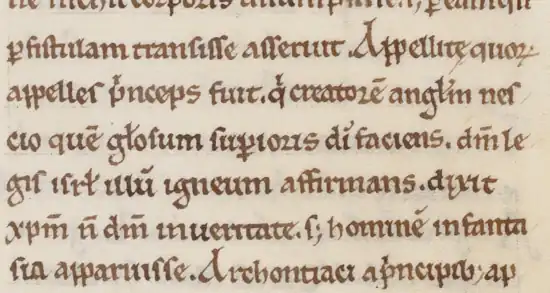 ꝑ fistulam transisse asserunt. Appellitę quoꝝ
appelles p̃nceps fuit. q̃ creatorē angl̃m nes
cio quē gl̃osum suꝑioris dī faciens. dm̃ le
gis isrl̃ illū igneum affirmans. dixit
xpm̃ ñ dm̃ in ueritate. sꝫ hominē in fanta
sia apparuisse. Archontiaci a p̃ncipibꝫ ap